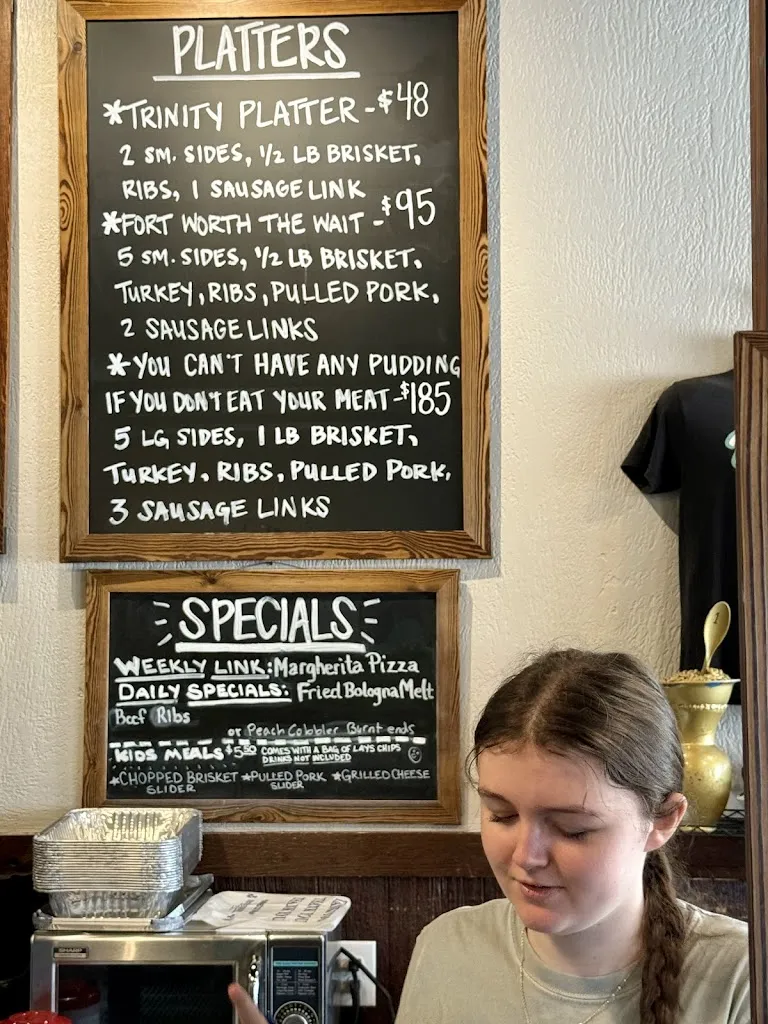 PLATTERS
*TRINITY PLATTER - $48
2 SM. SIDES, 1/2 LB BRISKET,
RIBS, 1 SAUSAGE LINK
*FORT WORTH THE WAIT - $95
5 SM. SIDES, 1/2 LB BRISKET,
TURKEY, RIBS, PULLED PORK,
2 SAUSAGE LINKS
*YOU CAN'T HAVE ANY PUDDING
IF YOU DON'T EAT YOUR MEAT - $185
5 LG SIDES, 1 LB BRISKET,
TURKEY, RIBS, PULLED PORK,
3 SAUSAGE LINKS
SPECIALS
WEEKLY LINK: Margherita Pizza
DAILY SPECIALS: Fried Bologna Melt
Beef Ribs
or Peach Cobbler Burnt ends
KIDS MEALS $5.50 COMES WITH A BAG OF LAYS CHIPS
DRINKS NOT INCLUDED
*CHOPPED BRISKET SLIDER *PULLED PORK SLIDER *GRILLED CHEESE
SHARP